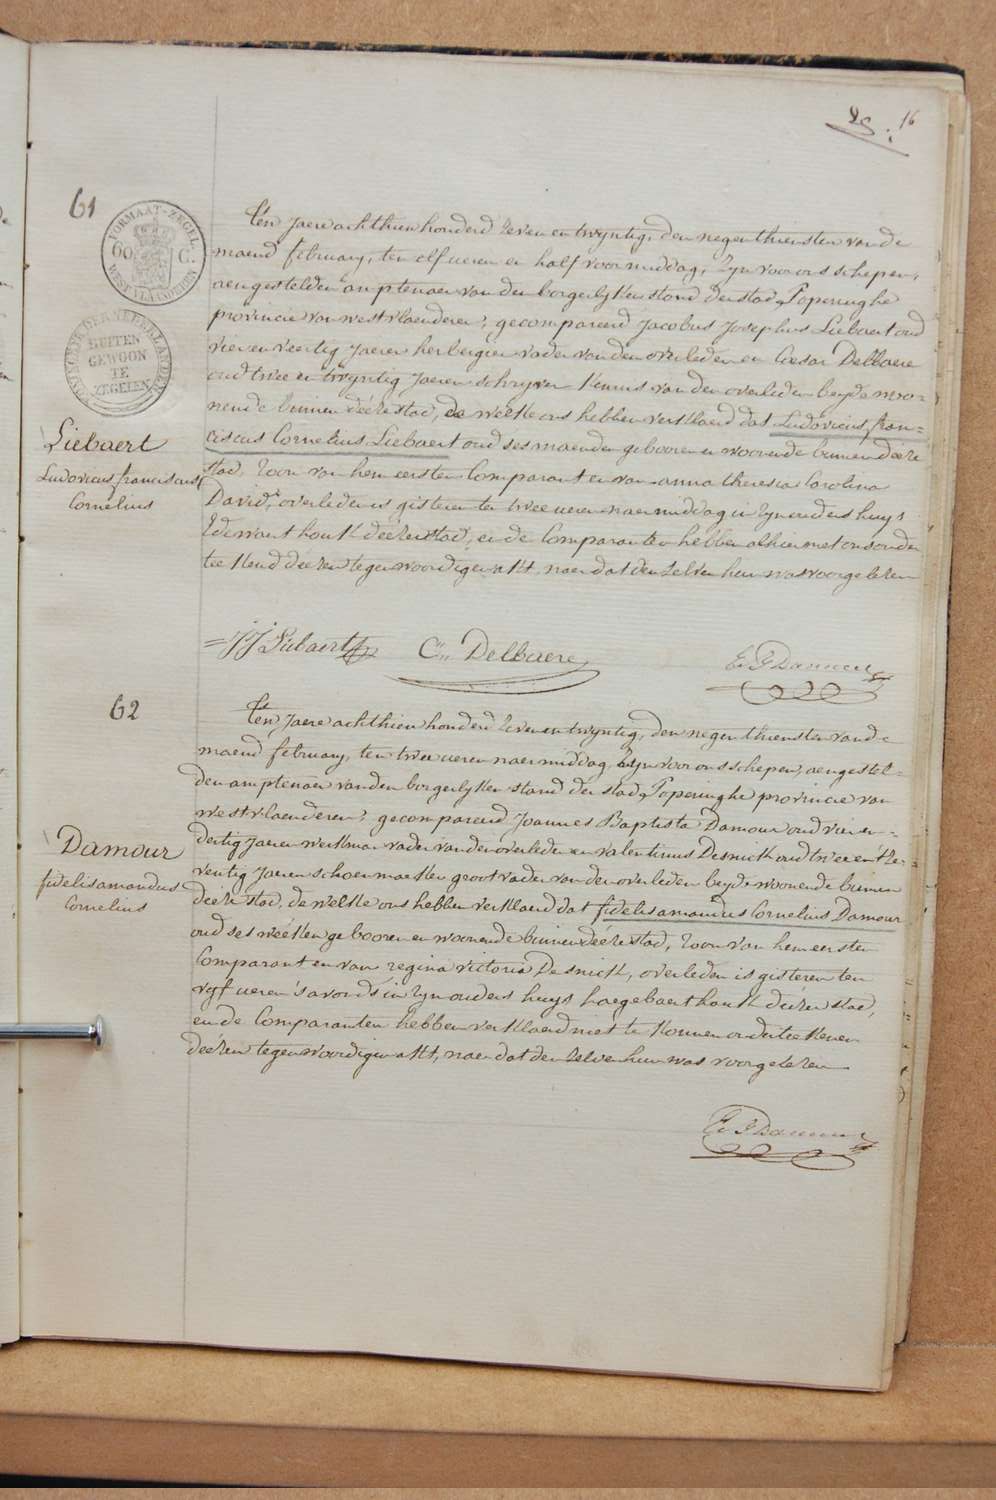 16
61
FORMAAT-ZEGEL
60 C.
WEST VLAANDEREN
KONINGRYK DER NEDERLANDEN
BUITEN
GEWOON
TE
ZEGELEN
Liebaert
Ludovicus franciscus
Cornelius
Ten jaere achthien honderd zeven en twyntig, den negenthiensten van de
maend february, ten elf ueren en half voormiddag, zyn voor ons schepen,
aengestelden amptenaer van den borgerlyken stand der stad Poperinghe
provincie van westvlaenderen, gecompareerd Jacobus Josephus Liebaert oud
vier en veertig jaeren herbergier vader van den overleden en Cesar Delbaere
oud twee en twyntig jaeren schryver kennis van den overleden beyde woo-
nende binnen deéze stad, de welke ons hebben verklaerd dat Ludovicus fran-
ciscus Cornelius Liebaert oud ses maenden gebooren en woonende binnen deéze
stad, zoon van hem eersten Comparant en van anna theresia Carolina
David, overleden is gisteren ten twee ueren naermiddag in zyn ouders huys
Edewaut houk deézer stad, en de Comparanten hebben alhier met ons onder
teekend deézen tegenwoordigen akt, naer dat den zelven hun was voorgelezen
JJ Liebaert
C. Delbaere
62
Damour
fidelis amandus
Cornelius
Ten jaere achthien honderd zeven en twyntig, den negenthiensten van de
maend february, ten twee ueren naermiddag, zyn voor ons schepen, aengestel-
den amptenaer van den borgerlyken stand der stad Poperinghe provincie van
westvlaenderen, gecompareerd Joannes Baptista Damour oud vier en
dertig jaeren werkman vader van den overleden en valentinus Desnick oud twee en ze-
ventig jaeren schoenmaeker grootvader van den overleden beyde woonende binnen
deéze stad, de welke ons hebben verklaerd dat fidelis amandus Cornelius Damour
oud ses weéken gebooren en woonende binnen deéze stad, zoon van hem eersten
Comparant en van regina victoria Desnick, overleden is gisteren ten
vyf ueren 's avonds in zyn ouders huys haegebaert houk deézer stad,
en de Comparanten hebben verklaerd niet te konnen onderteekenen
deézen tegenwoordigen akt, naer dat den zelven hun was voorgelezen